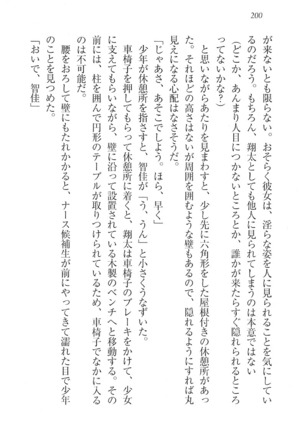 200
が来ないとも限らない。おそらく彼女は、淫らな姿を人に見られることを気にしてい
るのだろう。もちろん、翔太としても他人に見られてしまうのは本意ではない。
（どこか、あんまり人目につかないところとか、誰かが来たらすぐ隠れられるところ
ってないかな？）
と思いながらあたりを見まわすと、少し先に六角形をした屋根付きの休憩所があっ
た。それほどの高さはないが周囲を囲むような壁もあるので、隠れるようにすれば丸
見えになる心配はなさそうだ。
「じゃあさ、あそこでしようか。ほら、早く」
少年が休憩所を指さすと、智佳が「う、うん」と小さくうなずいた。
車椅子を押してもらって休憩所に着くと、翔太は車椅子のブレーキをかけて、少女
に支えてもらいながら、壁に沿って設置されている木製のベンチへと移動する。その
前には、柱を囲んで円形のテーブルが取りつけられているため、車椅子でなかに入る
のは不可能だ。
腰をおろして壁にもたれかかると、ナース候補生が前にやってきて濡れた目で少年
のことを見つめた。
「おいで、智佳」